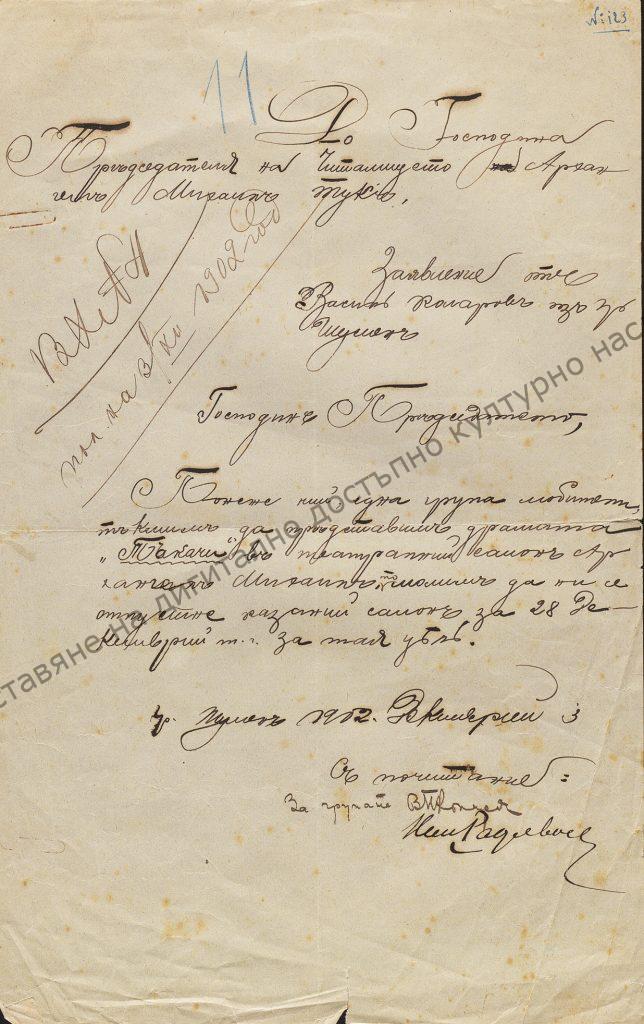 № 123
11
До Господина
Председателя на Читалището Архан
гелъ Михаилъ тукъ,
Заявление отъ
Василъ Коларовъ изъ гр
Шуменъ
вх № 11
пол. на 3/XII 1902 год
Господинъ Председателю,
Понеже ний една група любители,
тъкмимъ да представимъ драмата
„Ткачи" въ театралний салонъ Ар
хангелъ Михаилъ молимъ да ни се
отпустне казаний салонъ за 28 Де-
кемврий т. г. за тая цѣль.
гр. Шуменъ 1902. Декемврий 3
Съ почитание:
За групата
ставяне на дигитално достъпно културно нас